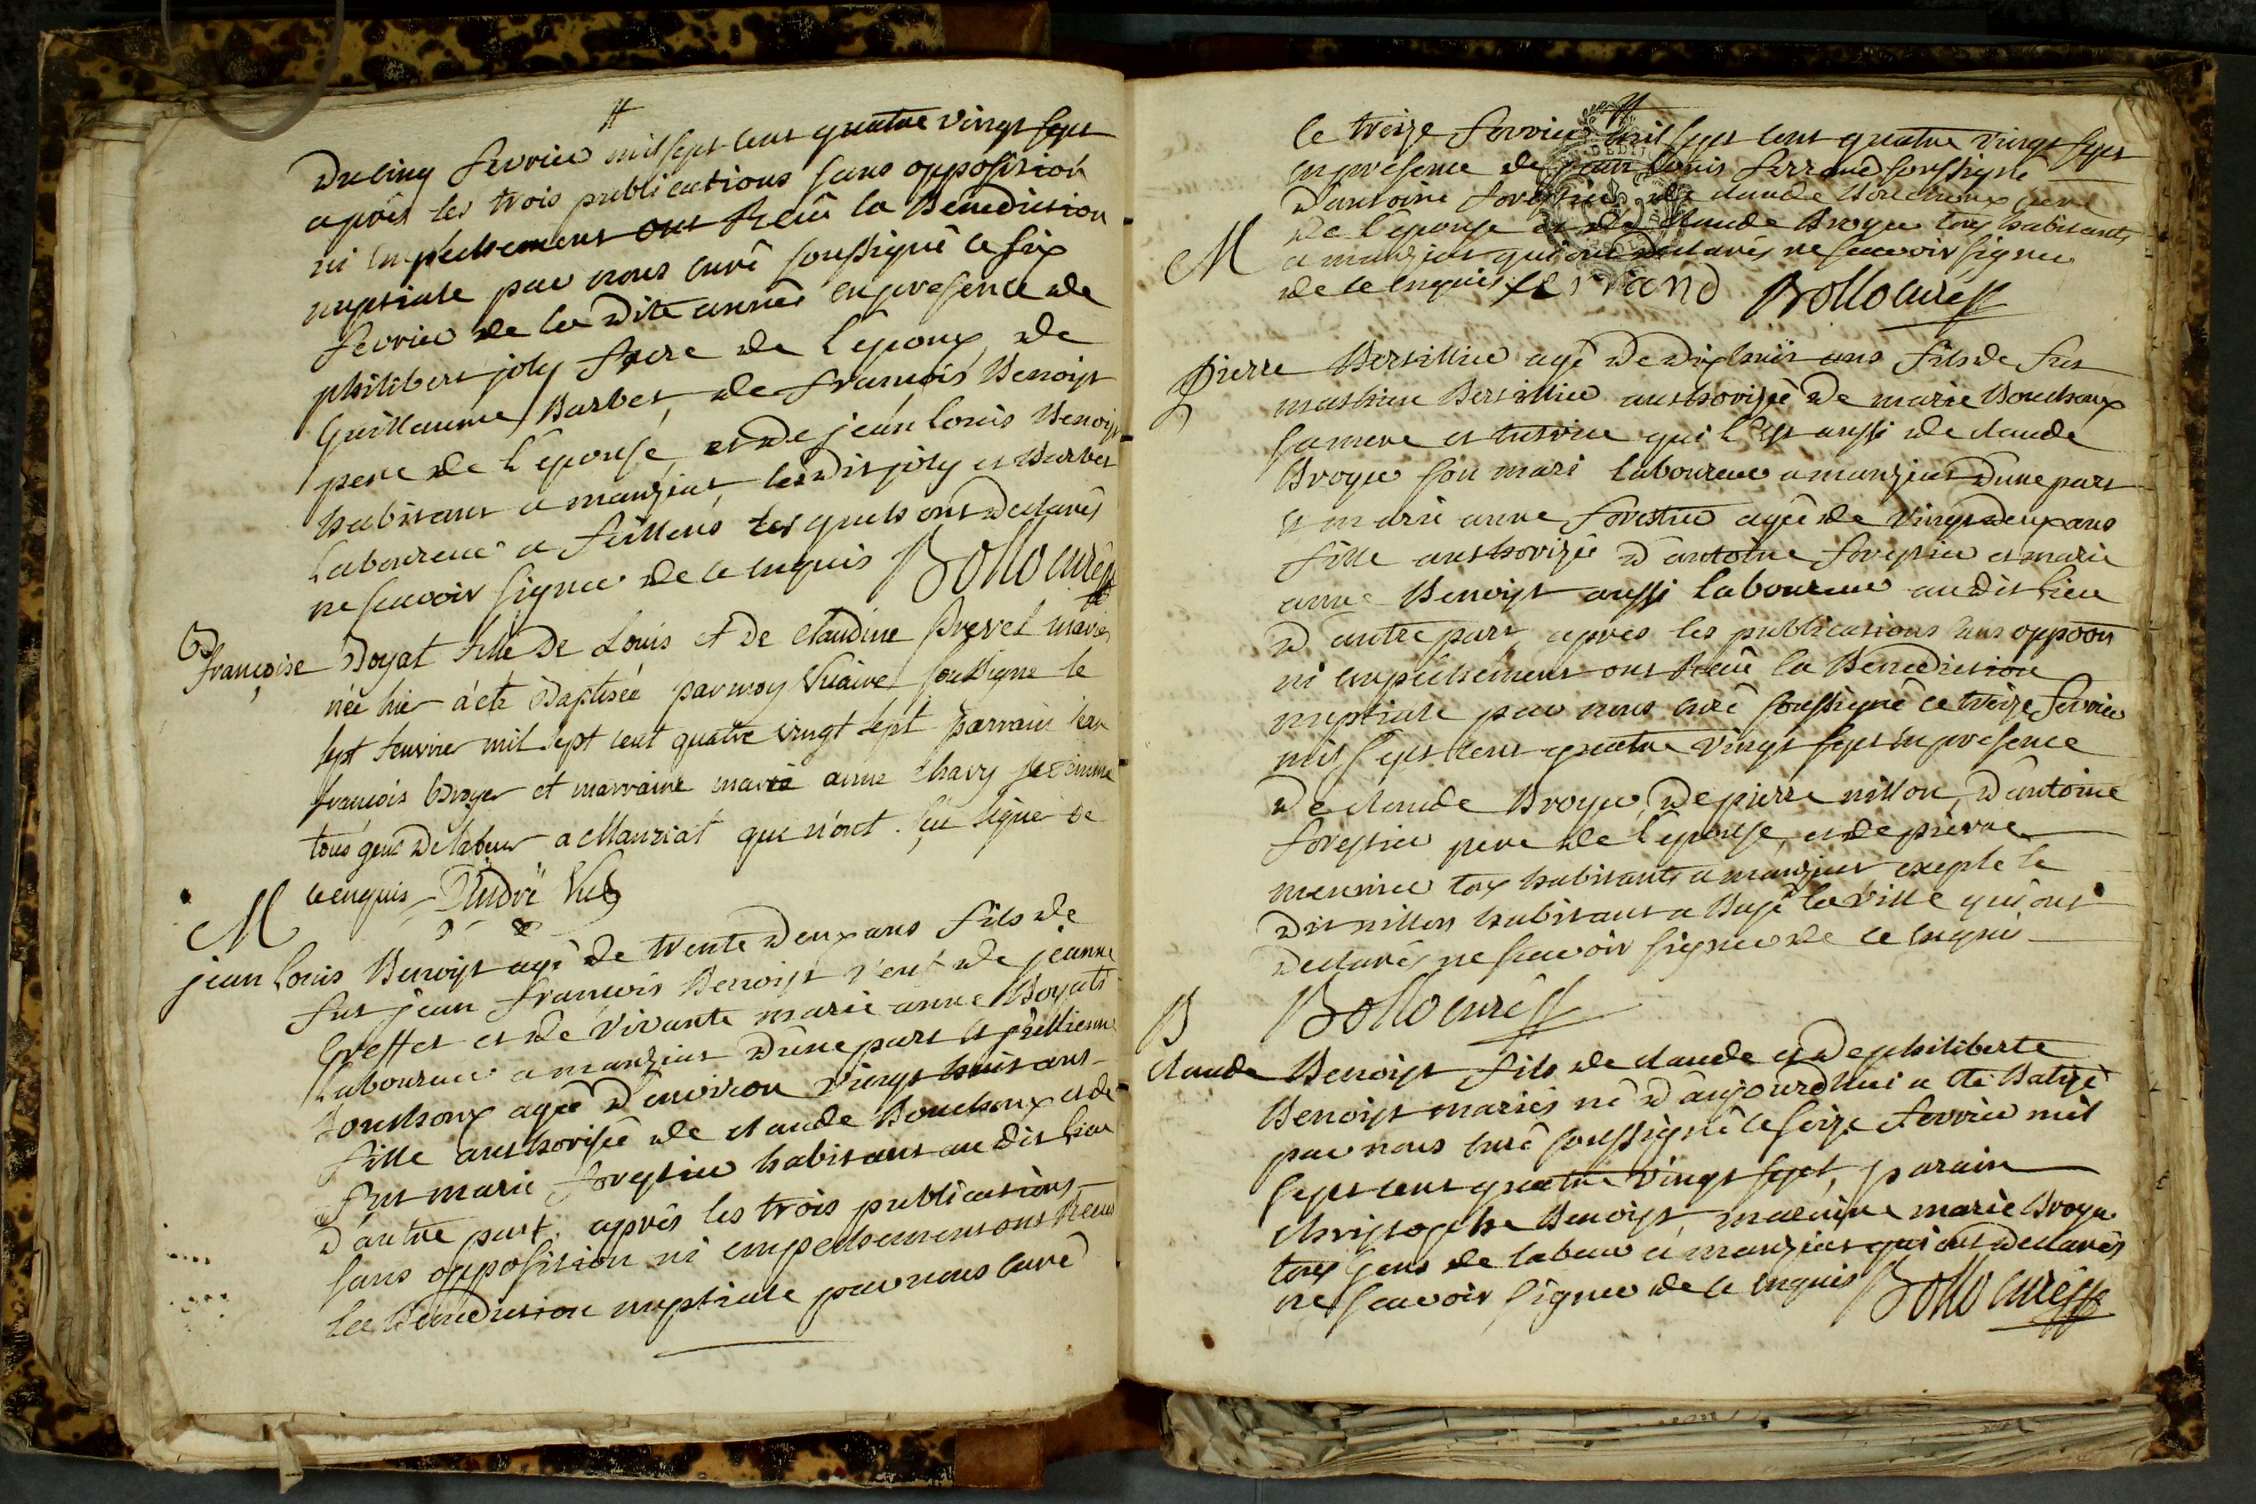 Du cinq fevrier mil sept cent quatre vingt sept
après les trois publications sans opposition
ni empechement ont Reçû la Benediction
nuptiale par nous curé soussigné le six
fevrier de la dite année en presence de
philibert joly frere de l'epoux, de
Guillaume Barbet, de françois Benoist
pere de l'épouse, et de jean louis Benoist
habitant a manziat, les dits joly et Barbet
Laboureur a feillens lesquels ont declarés
ne scavoir signer de ce enquis Bollo curé
B
françoise Doyat fille de Louis et de Claudine Prevel mariés
née hier à été Baptisée par moy Vicaire soussigné le
sept feuvrier mil sept cent quatre vingt sept parrain jean
françois broyer et marraine marie anne chavy sa femme
tous gens de labeur a Manziat qui n'ont sçu signer de
ce enquis André Vic
M
jean louis Benoist agé de trente deux ans fils de
fut jean françois Benoist veuf de jeanne
Greffet et de vivante marie anne Doyat
Laboureur a manziat d'une part et
Bouchoux agée d'environ vingt huit ans
fille authorisée de claude Bouchoux et de
fut marie forestier habitant au dit lieu
d'autre part, après les trois publications
sans opposition ni empechement ont Receus
la Benediction nuptiale par nous curé
le treize fevrier mil sept cent quatre vingt sept
en presence de jean louis ferrand soussigné
d'antoine forestier, de claude Bouchoux pere
de l'epouse et de claude Broyer tous habitants
M
a manziat qui ont declarés ne scavoir signer
de ce enquis ferrand Bollo curé
Pierre Bertillier agé de dix huit ans fils de fut
mathieu Bertillier authorizé de marie Bouchoux
sa mere et tutrice qui l'est aussi de claude
Broyer son mari laboureur a manziat d'une part
et marie anne forestier agée de vingt deux ans
fille authorizée d'antoine forestier et marie
anne Benoist aussi laboureur au dit lieu
d'autre part après les publications sans oppoon
ni empechement ont Receu la Benediction
nuptiale par nous curé soussigné le treize fevrier
mil sept cent quatre vingt sept en presence
de claude Broyer, de pierre nillon, d'antoine
forestier pere de l'epouse, et de pierre
meunier tous habitants a manziat excepté le
dit nillon habitant a Bagé la ville qui ont
declarés ne scavoir signer de ce enquis
Bollo curé
B
claude Benoist fils de claude et de philiberte
Benoist mariés né d'aujourd'hui a été Batizé
par nous curé soussigné le seize fevrier mil
sept cent quatre vingt sept, parain
christophe Benoist, maraine marie Broyer
tous gens de labeur a manziat qui ont declarés
ne scavoir signer de ce enquis Bollo curé